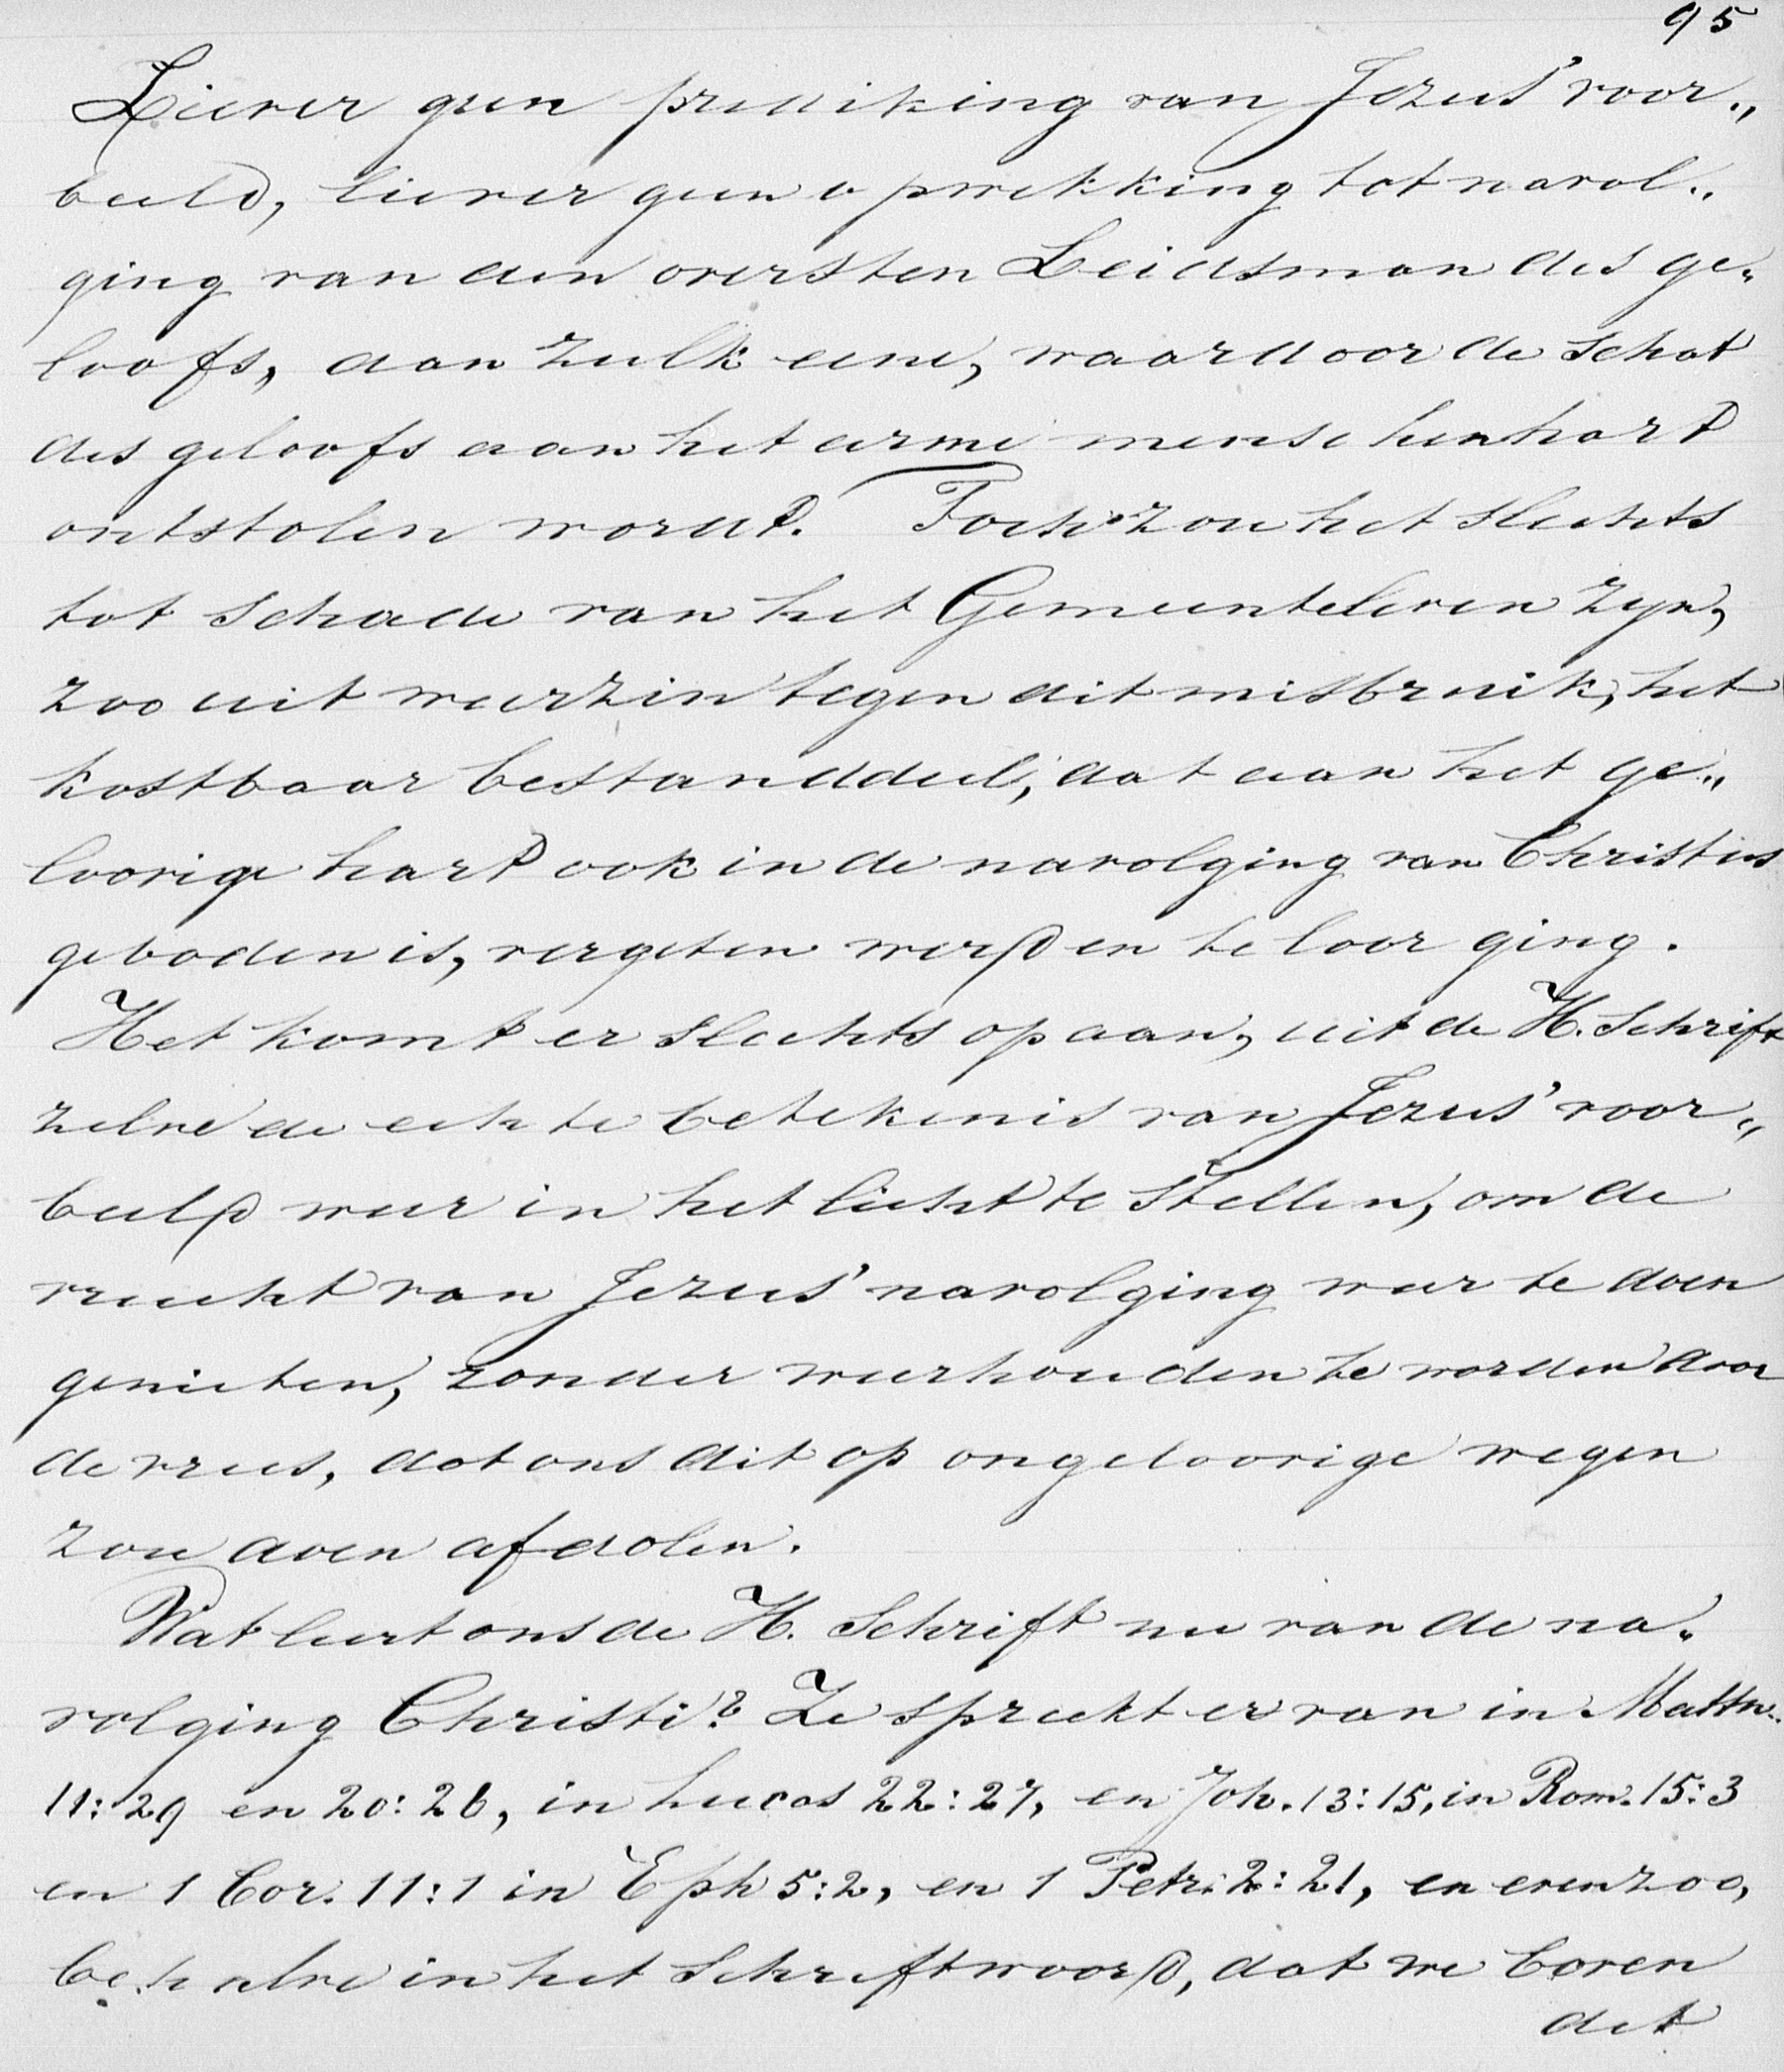 95
Liever geen prediking van Jezus' voor„
beeld, liever geen opwekking tot navol„
ging van den oversten Leidsman des ge„
loofs, dan zulk eene, waardoor de schat
des geloofs aan het arme menschenhart
ontstolen wordt. Toch zou het slechts
tot schade van het Gemeenteleven zijn,
zoo uit weerzin tegen dit misbruik, het
kostbaar bestanddeel, dat aan het ge„
loovige hart ook in de navolging van Christus
geboden is, vergeten werd en te loor ging.
Het komt er slechts op aan, uit de H. Schrift
zelve de echte beteekenis van Jezus' voor„
beeld weer in het licht te stellen, om de
vrucht van Jezus' navolging weer te doen
genieten, zonder weerhouden te worden door
de vrees, dat ons dit op ongeloovige wegen
zou doen afdolen.
Wat leert ons de H. Schrift nu van de na„
volging Christi? Ze spreekt er van in Matth.
11:29 en 20:26, in Lucas 22:27, en Joh. 13:15, in Rom. 15:3
en 1 Cor. 11:1 in Eph 5:2, en 1 Petr. 2:21, en evenzoo,
behalve in het Schriftwoord, dat we boven
det